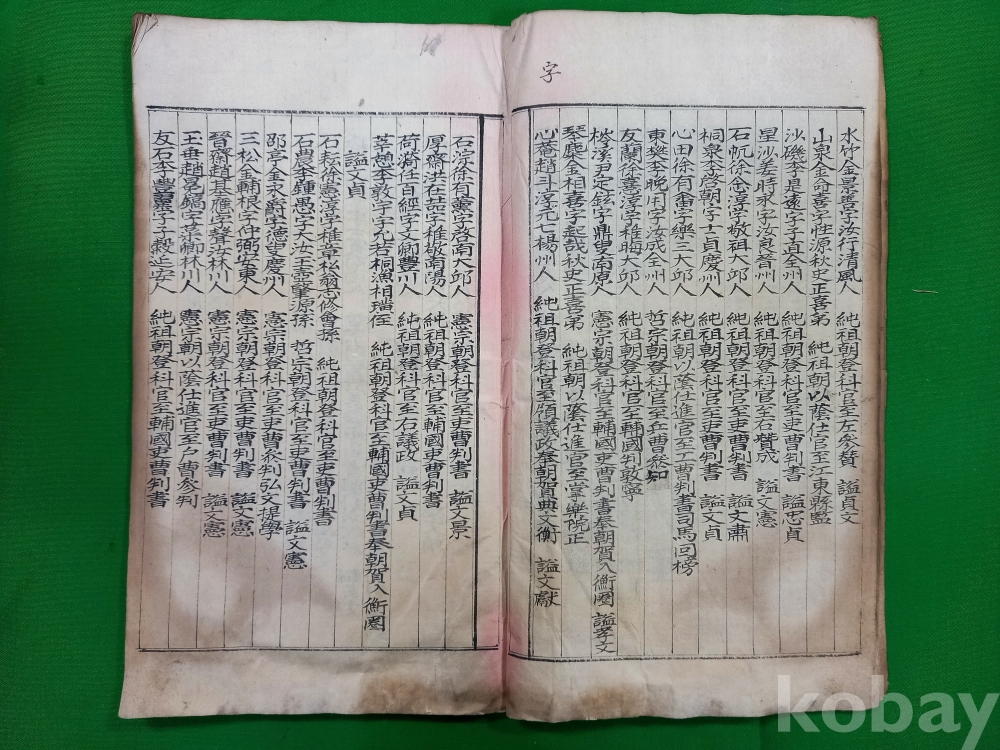 字
水竹金景善字汝行清風人 純祖朝登科官至左參賛 諡貞文
山泉金命喜字性源秋史正喜弟 純祖朝以蔭仕官至江東縣監
沙磯李是遠字子直全州人 純祖朝登科官至吏曹判書 諡忠貞
星沙姜時永字汝良晉州人 純祖朝登科官至右賛成 諡文憲
石帆徐念淳字敬祖大邱人 純祖朝登科官至吏曹判書 諡文肅
桐泉李啓朝字士貞慶州人 純祖朝登科官至吏曹判書 諡文貞
心田徐有畬字樂三大邱人 純祖朝以蔭仕進官至工曹判書司馬回榜
東樊李晚用字汝成全州人 哲宗朝登科官至兵曹叅知
友蘭徐憙淳字稚晦大邱人 純祖朝登科官至輔國判敦寧
桉溪尹定鉉字鼎叟南原人 憲宗朝登科官至輔國吏曹判書奉朝賀入衡圈 諡孝文
琴麋金相喜字起哉秋史正喜弟 純祖朝以蔭仕進官至掌樂院正
心菴趙斗淳元七楊州人 純祖朝登科官至領議政奉朝賀典文衡 諡文獻
石淙徐有薰字洛南大邱人 憲宗朝登科官至吏曹判書 諡文景
厚齋洪在喆字稚敬南陽人 純祖朝登科官至輔國吏曹判書
荷漪任百經字文卿豊川人 純祖朝登科官至右議政 諡文貞
莘憩李敦宇字允若桐漁相璜侄 純祖朝登科官至輔國吏曹判書奉朝賀入衡圈
諡文貞
石耘徐憲淳字稚章松翁志修曾孫 純祖朝登科官至吏曹判書
石農李鍾愚字大汝玉壺肇源孫 哲宗朝登科官至吏曹判書 諡文憲
邵亭金永爵字德叟慶州人 憲宗朝登科官至吏曹叅判弘文提學
三松金輔根字仲弼安東人 憲宗朝登科官至吏曹判書 諡文憲
晉齋趙基應字聲汝林川人 憲宗朝登科官至吏曹判書 諡文憲
玉垂趙冕鎬字藻卿林川人 憲宗朝以蔭仕進官至户曹叅判
友石李豊翼字子穀延安人 純祖朝登科官至輔國吏曹判書
kobay